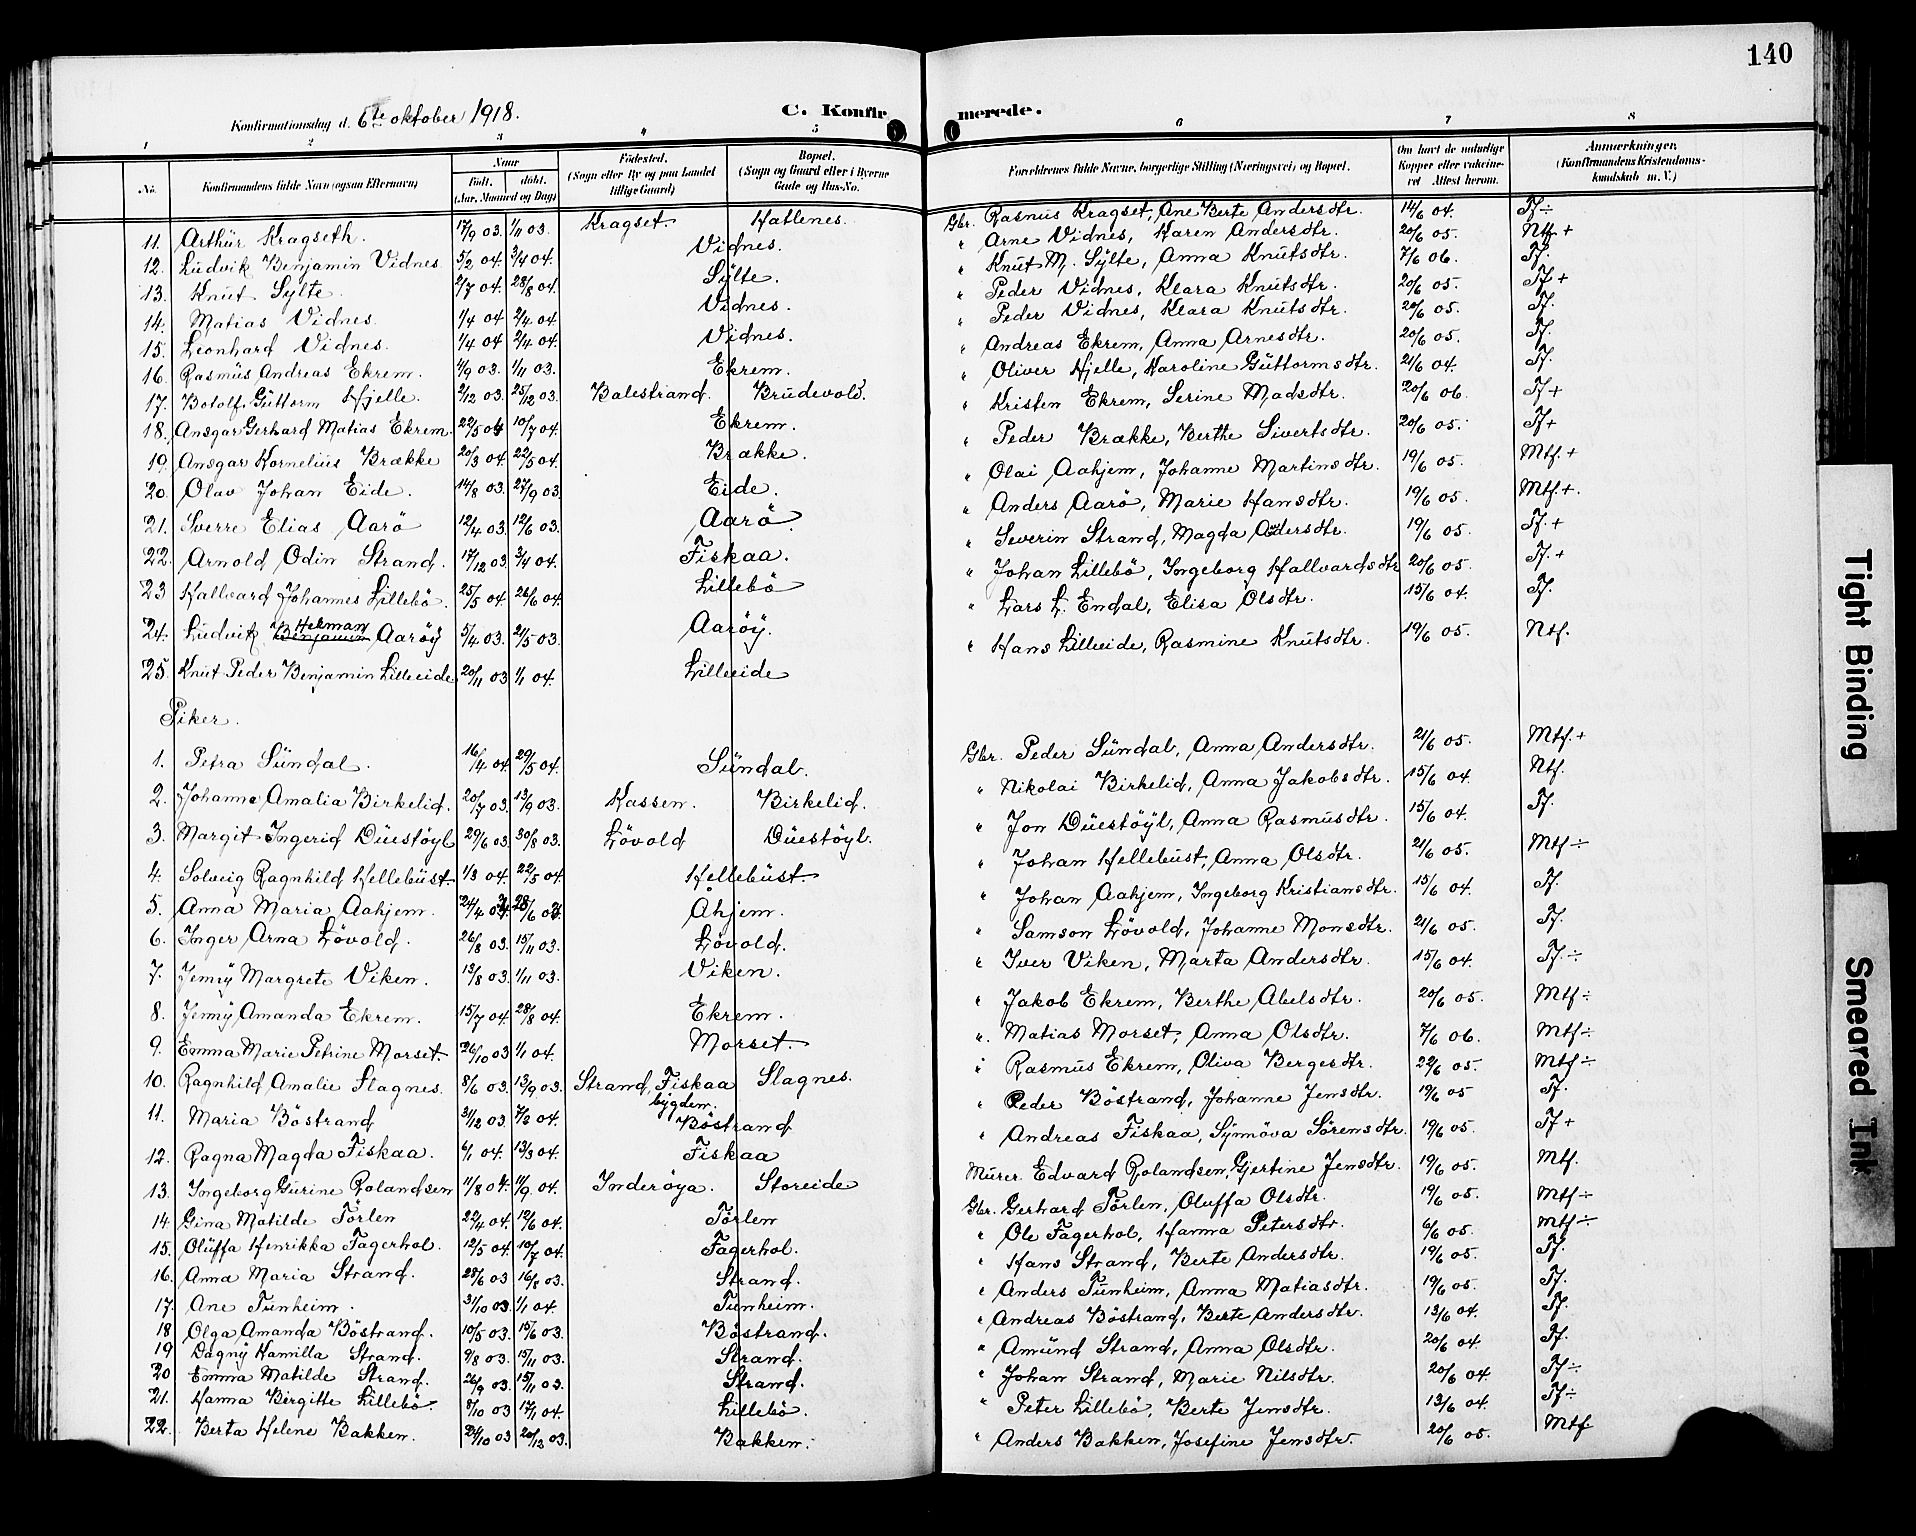 140
Konfirmationsdag d. 6te oktober 1918. C. Konfirmerede.
1 2 3 4 5 6 7 8
No. Konfirmandens fulde Navn (ogsaa Efternavn) Naar Født. døbt. (Aar, Maaned og Dag) Fødested. (Sogn eller By og paa Landet tillige Gaard) Bopæl. (Sogn og Gaard eller i Byerne Gade og Hus-No. Forældrenes fulde Navne, borgerlige Stilling (Næringsvei) og Bopæl. Om havt de naturlige Kopper eller vaksineret Attest herom. Anmærkninger. (Konfirmandens Kristendomskundskab m. V.)
11. Arthur Kragseth. 17/9 03. 1/11 03. Kragset. Hatlenes. Gbr. Rasmus Kragset, Ane Berte Andersdtr. 14/6 04. Tf ÷
12. Ludvik Benjamin Vidnes 5/2 04. 3/4 04. Vidnes. " Arne Vidnes, Karen Andersdtr. 20/6 05. Ntf. +
13. Knut Sylte. 2/7 04. 28/8 04. Sylte. " Knut M. Sylte, Anna Knutsdtr. 7/6 06. Tf.
14. Matias Vidnes. 1/4 04 2/4 04. Vidnes. " Peder Vidnes, Klara Knutsdtr. 20/6 05. Tf +
15. Leonhard Vidnes. 1/4 04 2/4 04. Vidnes. " Peder Vidnes, Klara Knutsdtr. 20/6 05. Tf.
16. Rasmus Andreas Ekrem. 4/9 03. 1/11 03. Ekrem. " Andreas Ekrem, Anna Arnesdtr. 20/6 05. Tf.
17. Botolf Guttorm Hjelle. 2/12 03. 25/12 03. Balestrand. Brudevold. " Oliver Hjelle, Karoline Guttormsdtr. 21/6 04. Tf.
18. Ansgar Gerhard Matias Ekrem. 22/5 04 10/7 04. Ekrem. " Kristen Ekrem, Serine Madsdtr. 20/6 06. Tf +
19. Ansgar Kornelius Brække 20/3 04. 22/5 04. Brække. " Peder Brække, Berthe Sivertsdtr. 20/6 05. Tf +
20. Olav Johan Eide. 14/8 03. 27/9 03. Eide. " Olai Aahjem, Johanne Martinsdtr. 19/6 05. Mtf. +
21. Sverre Elias Aarö 12/4 03. 12/6 03. Aarö. " Anders Aarö, Marie Hansdtr. 19/6 05. Mtf. +.
22. Arnold Odin Strand. 17/12 03. 3/4 04. Fiskaa. " Severin Strand, Magda Andersdtr. 19/6 05. Tf. +
23 Hallvard Johannes Lillebö. 25/5 04. 26/6 04. Lillebö " Johan Lillebö, Ingeborg Hallvardsdtr 20/6 05. Tf. +
24. Ludvik Benjamin Herman Aaröy 5/4 03. 21/5 03. Aaröy. " Lars L. Endal, Elisa Olsdtr. 15/6 04. Tf.
25. Knut Peder Benjamin Lilleeide 20/11 03 1/1 04. Lilleeide " Hans Lilleeide, Rasmine Knutsdtr. 19/6 05. Ntf.
Piker.
1. Petra Sundal. 16/4 04. 29/5 04. Sundal. Gbr. Peder Sundal, Anna Andersdtr. 21/6 05. Mtf. +
2. Johanna Amalia Birkelid. 20/7 03. 13/9 03. Kassen. Birkelid. " Nikolai Birkelid, Anna Jakobsdtr. 15/6 04. Ntf.
3. Margit Ingerid Duestöyl 29/6 03. 30/8 03. Lövold Duestöyl. " Jon Duestöyl, Anna Rasmusdtr. 15/6 04. Tf.
4. Solveig Ragnhild Hellebust. 1/3 04. 22/5 04. Hellebust. " Johan Hellebust, Anna Olsdtr. 21/6 05. Mtf ÷
5. Anna Maria Aahjem. 24/4 04. 28/6 04. Åhjem. " Johan Aahjem, Ingeborg Kristiansdtr. 15/6 04. Tf.
6. Inger Arna Lövold. 26/8 03. 15/11 03. Lövold. " Samson Lövold, Johanne Monsdtr. 21/6 05. Tf.
7. Jenny Margrete Viken. 13/8 03. 1/11 03. Viken. " Iver Viken, Marta Andersdtr. 15/6 04. Tf. ÷
8. Jenny Amanda Ekrem. 15/7 04. 28/8 04. Ekrem. " Jakob Ekrem, Berthe Abelsdtr. 20/6 05. Mtf ÷
9. Emma Marie Petrine Morset. 26/10 03 1/1 04. Morset. " Matias Morset, Anna Olsdtr. 7/6 06. Mtf ÷
10. Ragnhild Amalie Slagnes. 8/6 03. 13/9 03. Strand, Fiskaa bygden. Slagnes. " Rasmus Ekrem, Oliva Bergesdtr. 22/6 05. Mtf ÷
11. Maria Böstrand 31/12 03. 7/2 04. Böstrand " Peder Böstrand, Johanne Jensdtr. 19/6 05 Tf.
12. Ragna Magda Fiskaa. 6/1 04. 13/3 04. Fiskaa " Andreas Fiskaa, Synnöva Sörensdtr. 19/6 05. Tf +
13. Ingeborg Gurine Rolandsen 11/8 04. 11/9 04. Inderöya. Storeide Murer Edvard Rolandsen, Gjertine Jensdtr. 19/6 05. Mtf.
14. Gina Matilde Törlen 22/4 04. 12/6 04. Törlen Gbr. Gerhard Törlen, Oluffa Olsdtr. 19/6 05. Mtf ÷
15. Oluffa Henrikka Fagerhol. 12/5 04. 10/7 04. Fagerhol. " Ole Fagerhol, Hanna Petersdtr. 6/6 05. Mtf ÷
16. Anna Maria Strand. 28/6 03 16/8 03. Strand. " Hans Strand, Berte Andersdtr. 19/6 05. Tf.
17. Ane Tunheim. 31/10 03. 1/1 04. Tunheim. " Anders Tunheim, Anna Matiasdtr. 19/6 05. Tf.
18 Olga Amanda Böstrand. 10/5 03. 15/6 03. Böstrand. " Andreas Böstrand, Berte Andersdtr. 13/6 04. Tf.
19 Dagny Kamilla Strand. 9/8 03. 15/11 03. Strand. " Amund Strand, Anna Olsdtr. 20/6 04. Tf.
20 Emma Matilde Strand. 26/9 03. 15/11 03. Strand. " Johan Strand, Marie Nilsdtr. 20/6 04 Tf ÷
21. Hanna Birgitte Lillebö. 8/10 03 17/1 04. Lillebö. " Peter Lillebö, Berte Jensdtr. 13/6 04. Tf ÷
22. Berta Helene Bakken. 24/10 03 20/12 03. Bakken. " Anders Bakken, Josefine Jensdtr. 20/6 05. Mtf.
Tight Binding
Smeared Ink